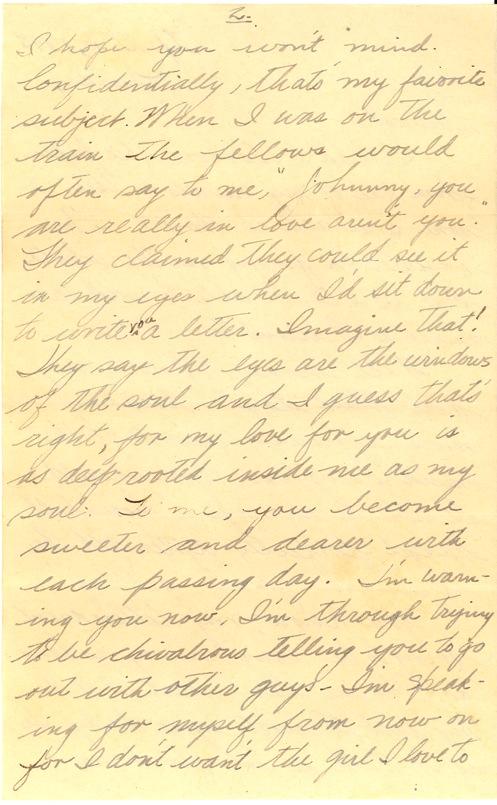 2.
I hope you won't mind.
Confidentially, that's my favorite
subject. When I was on the
train the fellows would
often say to me, "Johnny, you
are really in love aren't you."
They claimed they could see it
in my eyes when I'd sit down
to write you a letter. Imagine that!
They say the eyes are the windows
of the soul and I guess that's
right, for my love for you is
as deep rooted inside me as my
soul. To me, you become
sweeter and dearer with
each passing day. I'm warn-
ing you now, I'm through trying
to be chivalrous telling you to go
out with other guys - I'm speak-
ing for myself from now on
for I don't want the girl I love to